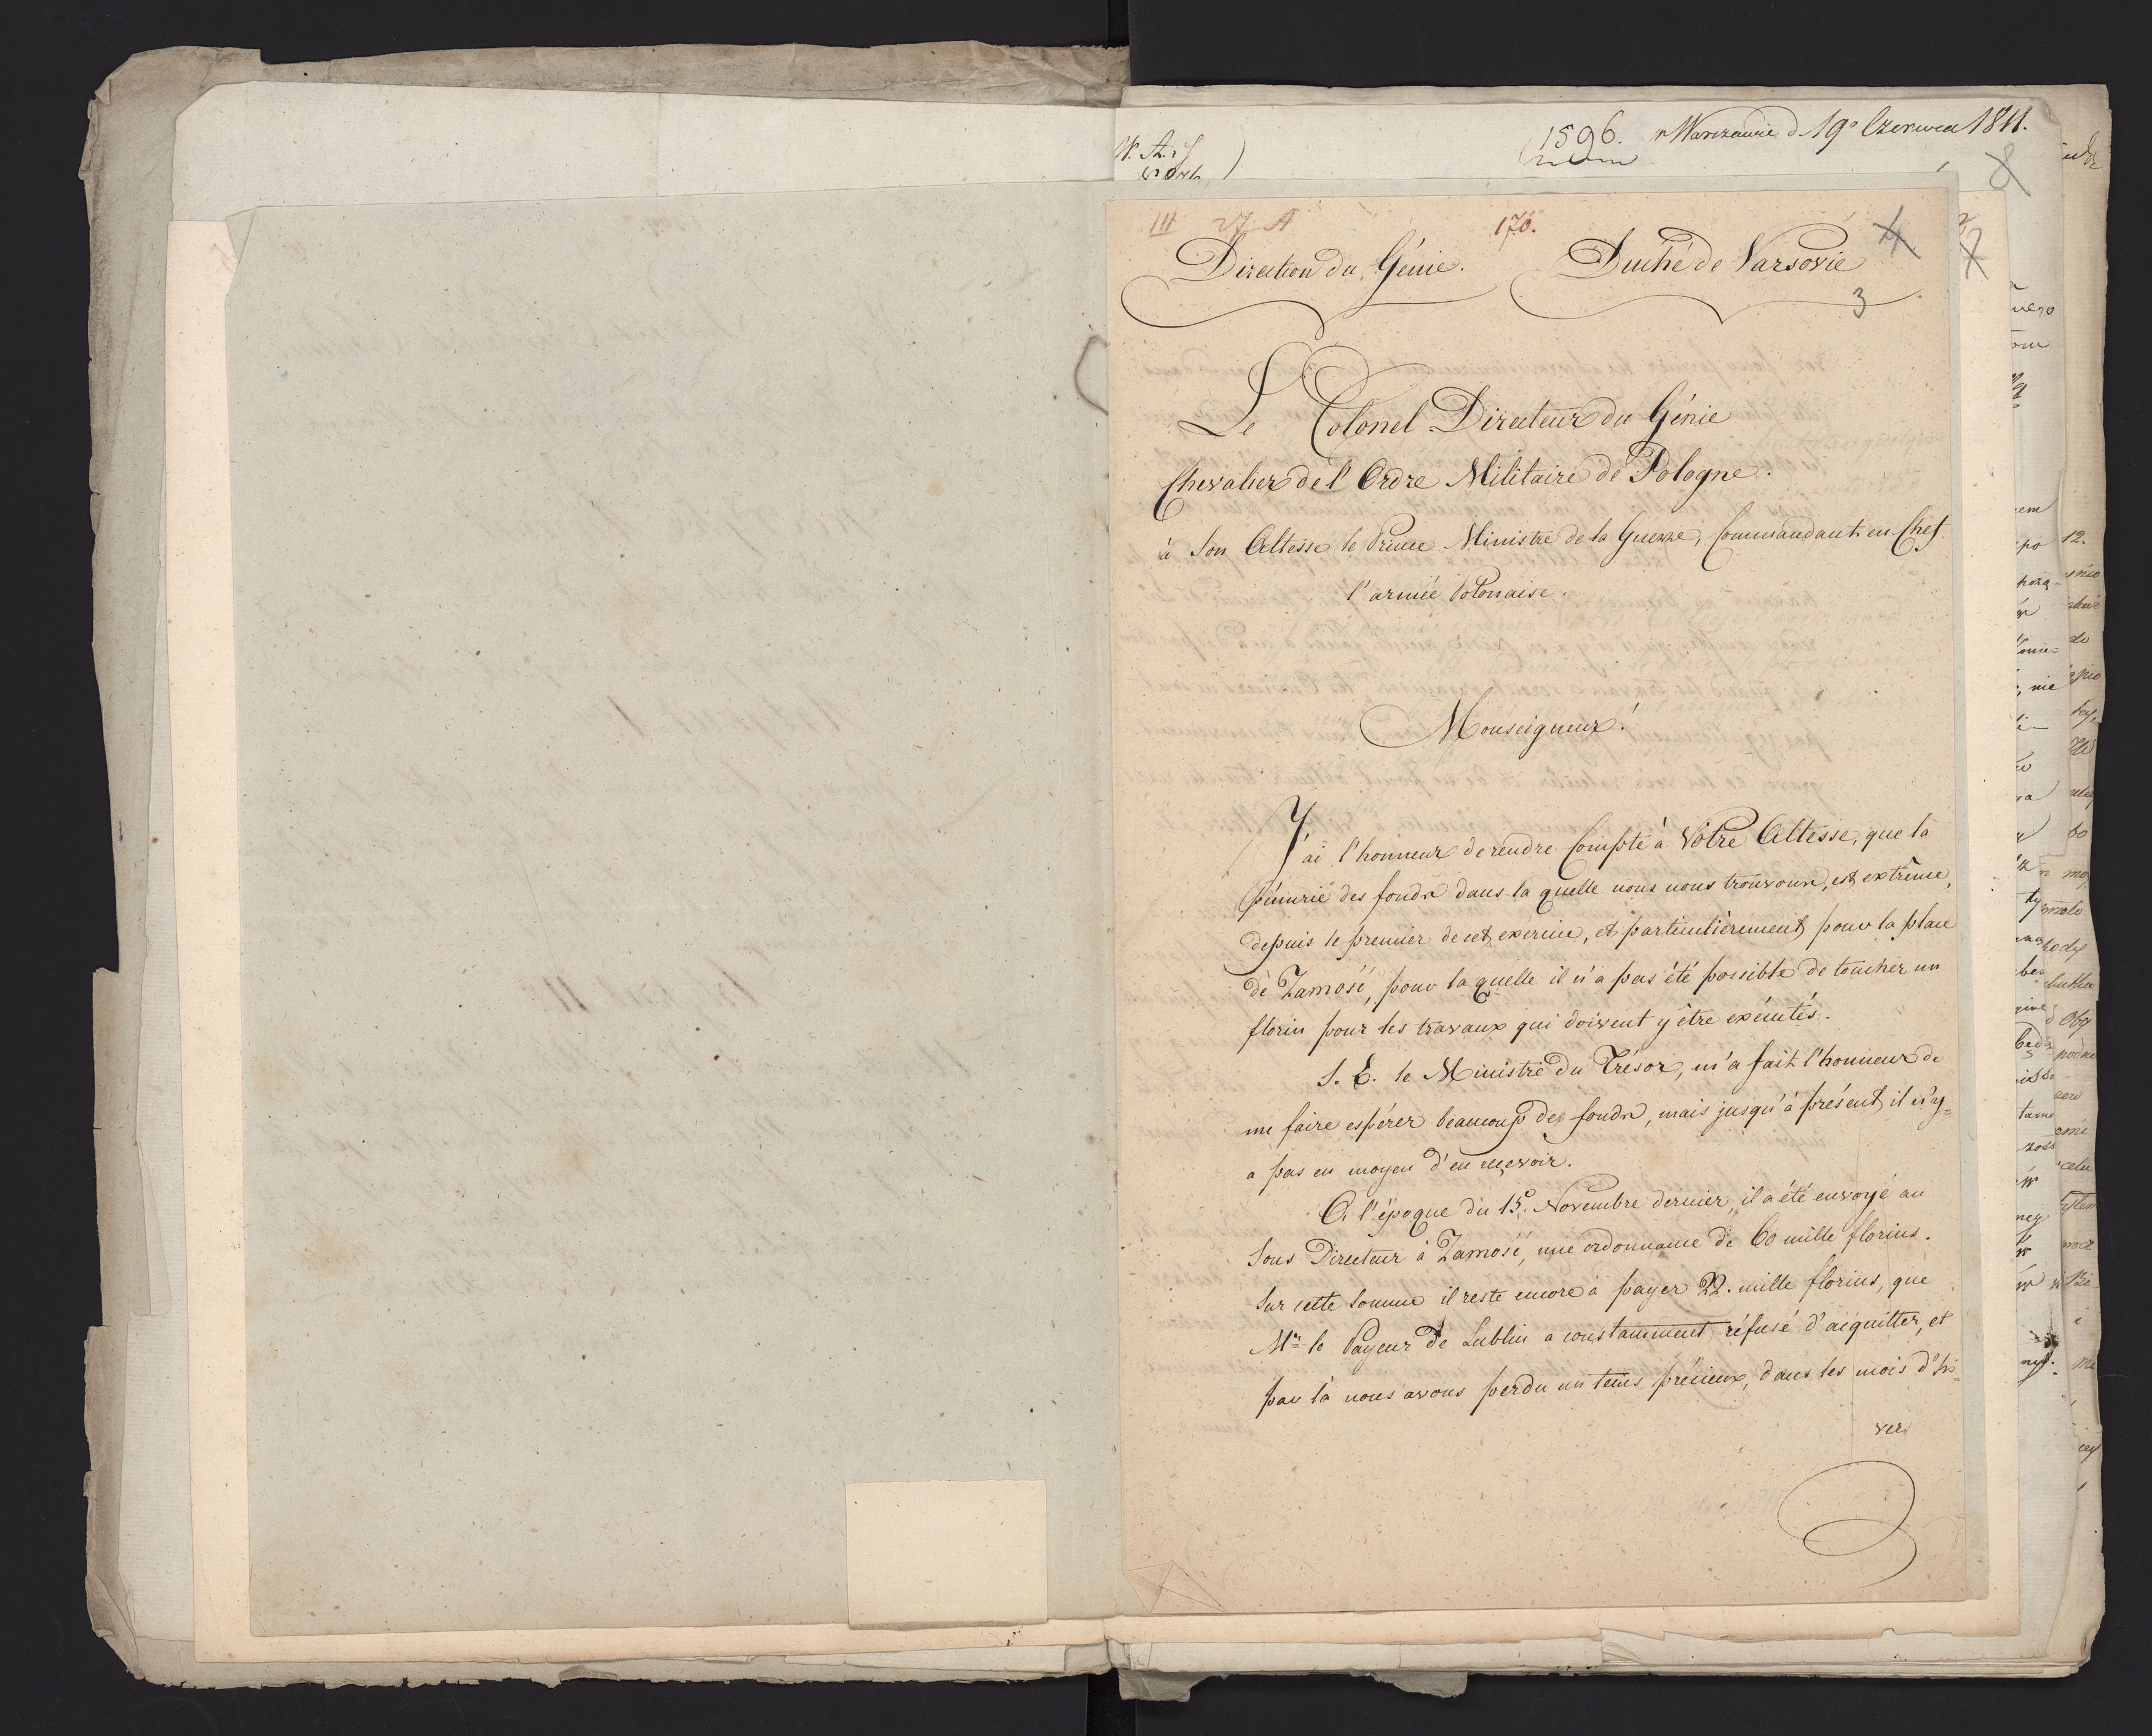 1596. w Warszawie d. 19º Czerwca 1811.
III 27 A 170.
Direction du Génie. Duché de Varsovie
3
Le Colonel Directeur du Génie
Chevalier de l'Ordre Militaire de Pologne.
à Son Altesse le Prince Ministre de la Guerre, Commandant en Chef
l'armée Polonaise.
Monseigneur!
J'ai l'honneur de rendre Compte à Votre Altesse, que la
pénurie des fonds dans la quelle nous nous trouvons, est extrême,
depuis le premier de cet exercice, et particulièrement pour la place
de Zamość, pour la quelle il n'a pas été possible de toucher un
florin pour les travaux qui doivent y être exécutés.
S. E. le Ministre du Trésor, m'a fait l'honneur de
me faire espérer beaucoup des fonds, mais jusqu'à présent il n'y=
a pas eu moyen d'en reçevoir.
A l'époque du 15º Novembre dernier, il a été envoyé au
Sous Directeur à Zamość, une ordonnance de 60 mille florins.
Sur cette somme il reste encore à payer 22. mille florins, que
Mr le Payeur de Lublin a constamment réfusé d'acquitter, et
par là nous avons perdu un tems précieux, dans les mois d'hi=
ver